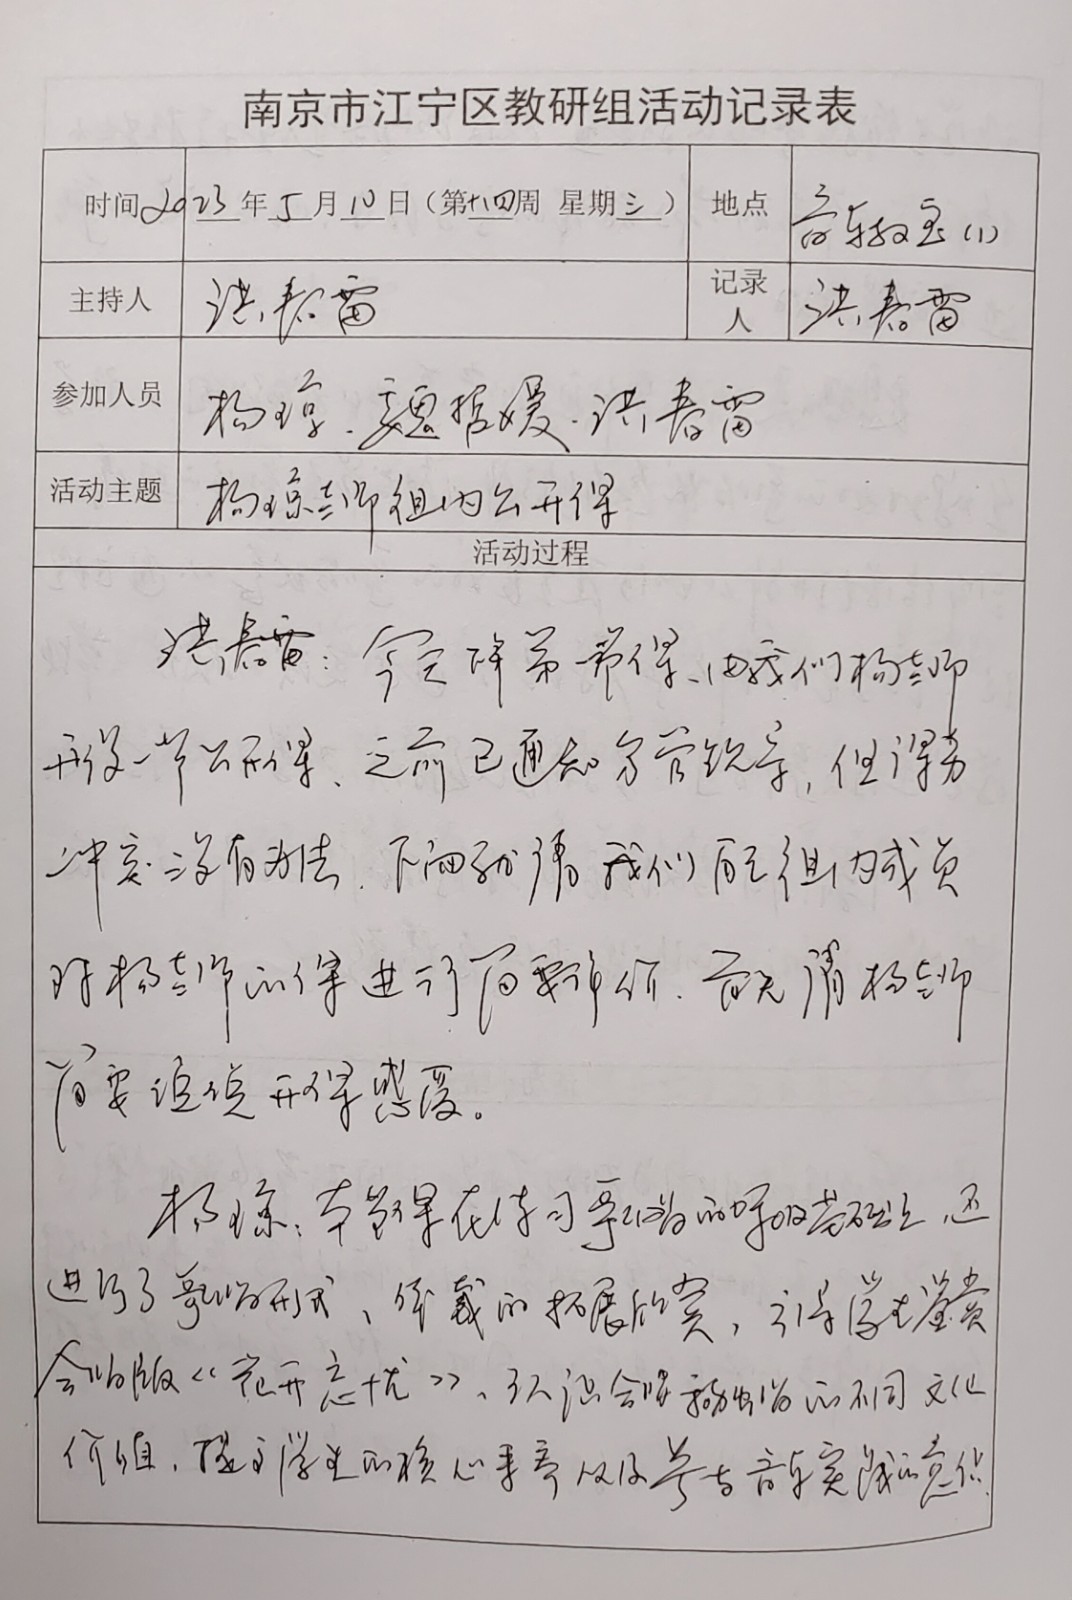 南京市江宁区教研组活动记录表
时间 2023 年 5 月 10 日（第十四周 星期三）
地点 音乐教室(1)
主持人 洪春雷
记录人 洪春雷
参加人员 杨琼、魏哲媛、洪春雷
活动主题 杨琼老师组内公开课
活动过程
洪春雷：今天下午第一节课、由我们杨老师
开设一节公开课、之前已通知分管领导，但课务
冲突没有办法、下面就请我们音乐组内成员
对杨老师的课进行简要评价、首先请杨老师
简要谈谈开课感受。
杨琼：本节课在练习歌唱的呼吸基础上，还
进行了歌唱形式、体裁的拓展欣赏，引导学生鉴赏
合唱版《花开忘忧》、认识合唱 的不同文化
价值、提高学生的核心素养以及参与音乐实践的意识